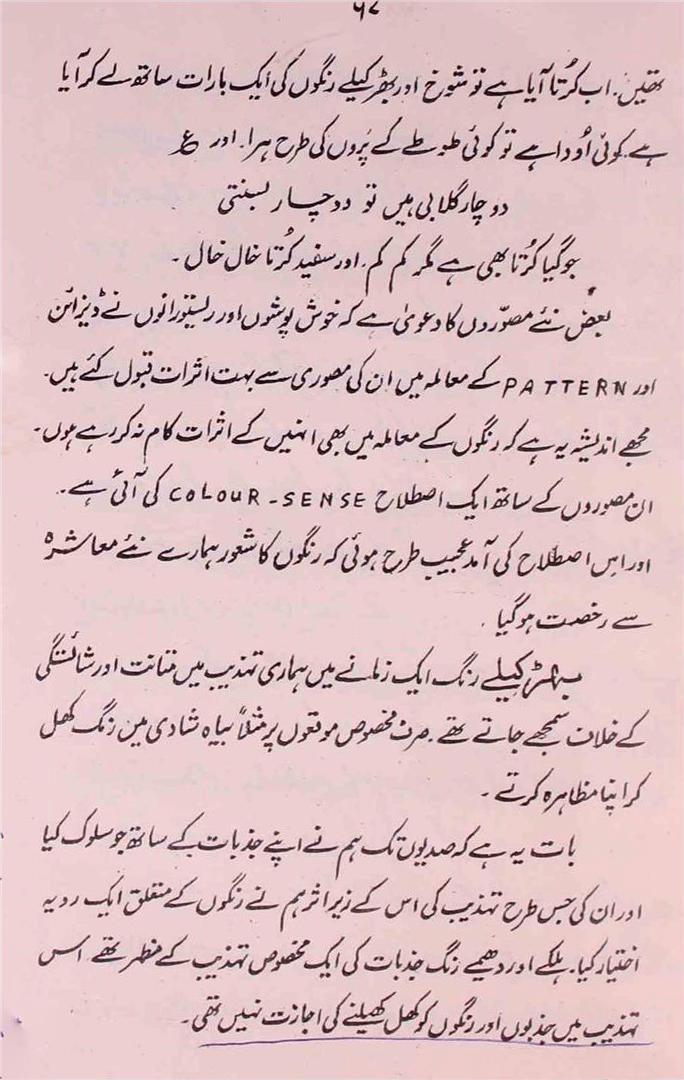 ۶۷
تھیں. اب کُرتا آیا ہے تو شوخ اور بھڑکیلے رنگوں کی ایک بارات ساتھ لے کر آیا
ہے. کوئی اُودا ہے تو کوئی طوطے کے پَروں کی طرح ہرا. اور ع
دو چار گلابی ہیں تو دو چار بسنتی
جوگیا کُرتا بھی ہے مگر کم کم. اور سفید کُرتا خال خال ۔
بعض نئے مصوّروں کا دعویٰ ہے کہ خوش پوشوں اور ریستورانوں نے ڈیزائن
اور PATTERN کے معاملہ میں ان کی مصوری سے بہت اثرات قبول کئے ہیں.
مجھے اندیشہ یہ ہے کہ رنگوں کے معاملہ میں بھی انہیں کے اثرات کام نہ کر رہے ہوں.
ان مصوروں کے ساتھ ایک اصطلاح COLOUR-SENSE کی آئی ہے.
اور اس اصطلاح کی آمد عجیب طرح ہوئی کہ رنگوں کا شعور ہمارے نئے معاشرہ
سے رخصت ہوگیا .
بھڑکیلے رنگ ایک زمانے میں ہماری تہذیب میں متانت اور شائستگی
کے خلاف سمجھے جاتے تھے. صرف مخصوص موقعوں پر مثلاً بیاہ شادی میں رنگ کھل
کر اپنا مظاہرہ کرتے ۔
بات یہ ہے کہ صدیوں تک ہم نے اپنے جذبات کے ساتھ جو سلوک کیا
اور ان کی جس طرح تہذیب کی اس کے زیر اثر ہم نے رنگوں کے متعلق ایک رویہ
اختیار کیا. ہلکے اور دھیمے رنگ جذبات کی ایک مخصوص تہذیب کے مظہر تھے اس
تہذیب میں جذبوں اور رنگوں کو کھل کھیلنے کی اجازت نہیں تھی ۔